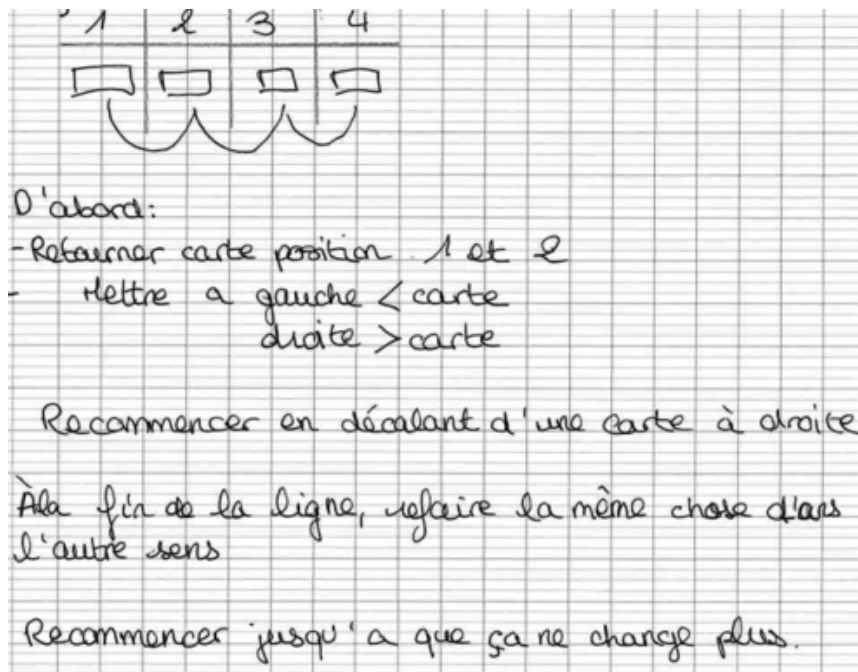 1 2 3 4
D'abord:
-Retourner carte position 1 et 2
- Mettre a gauche < carte
droite > carte
Recommencer en décalant d'une carte à droite
Àla fin de la ligne, refaire la même chose d'ans
l'autre sens
Recommencer jusqu'a que ça ne change plus.